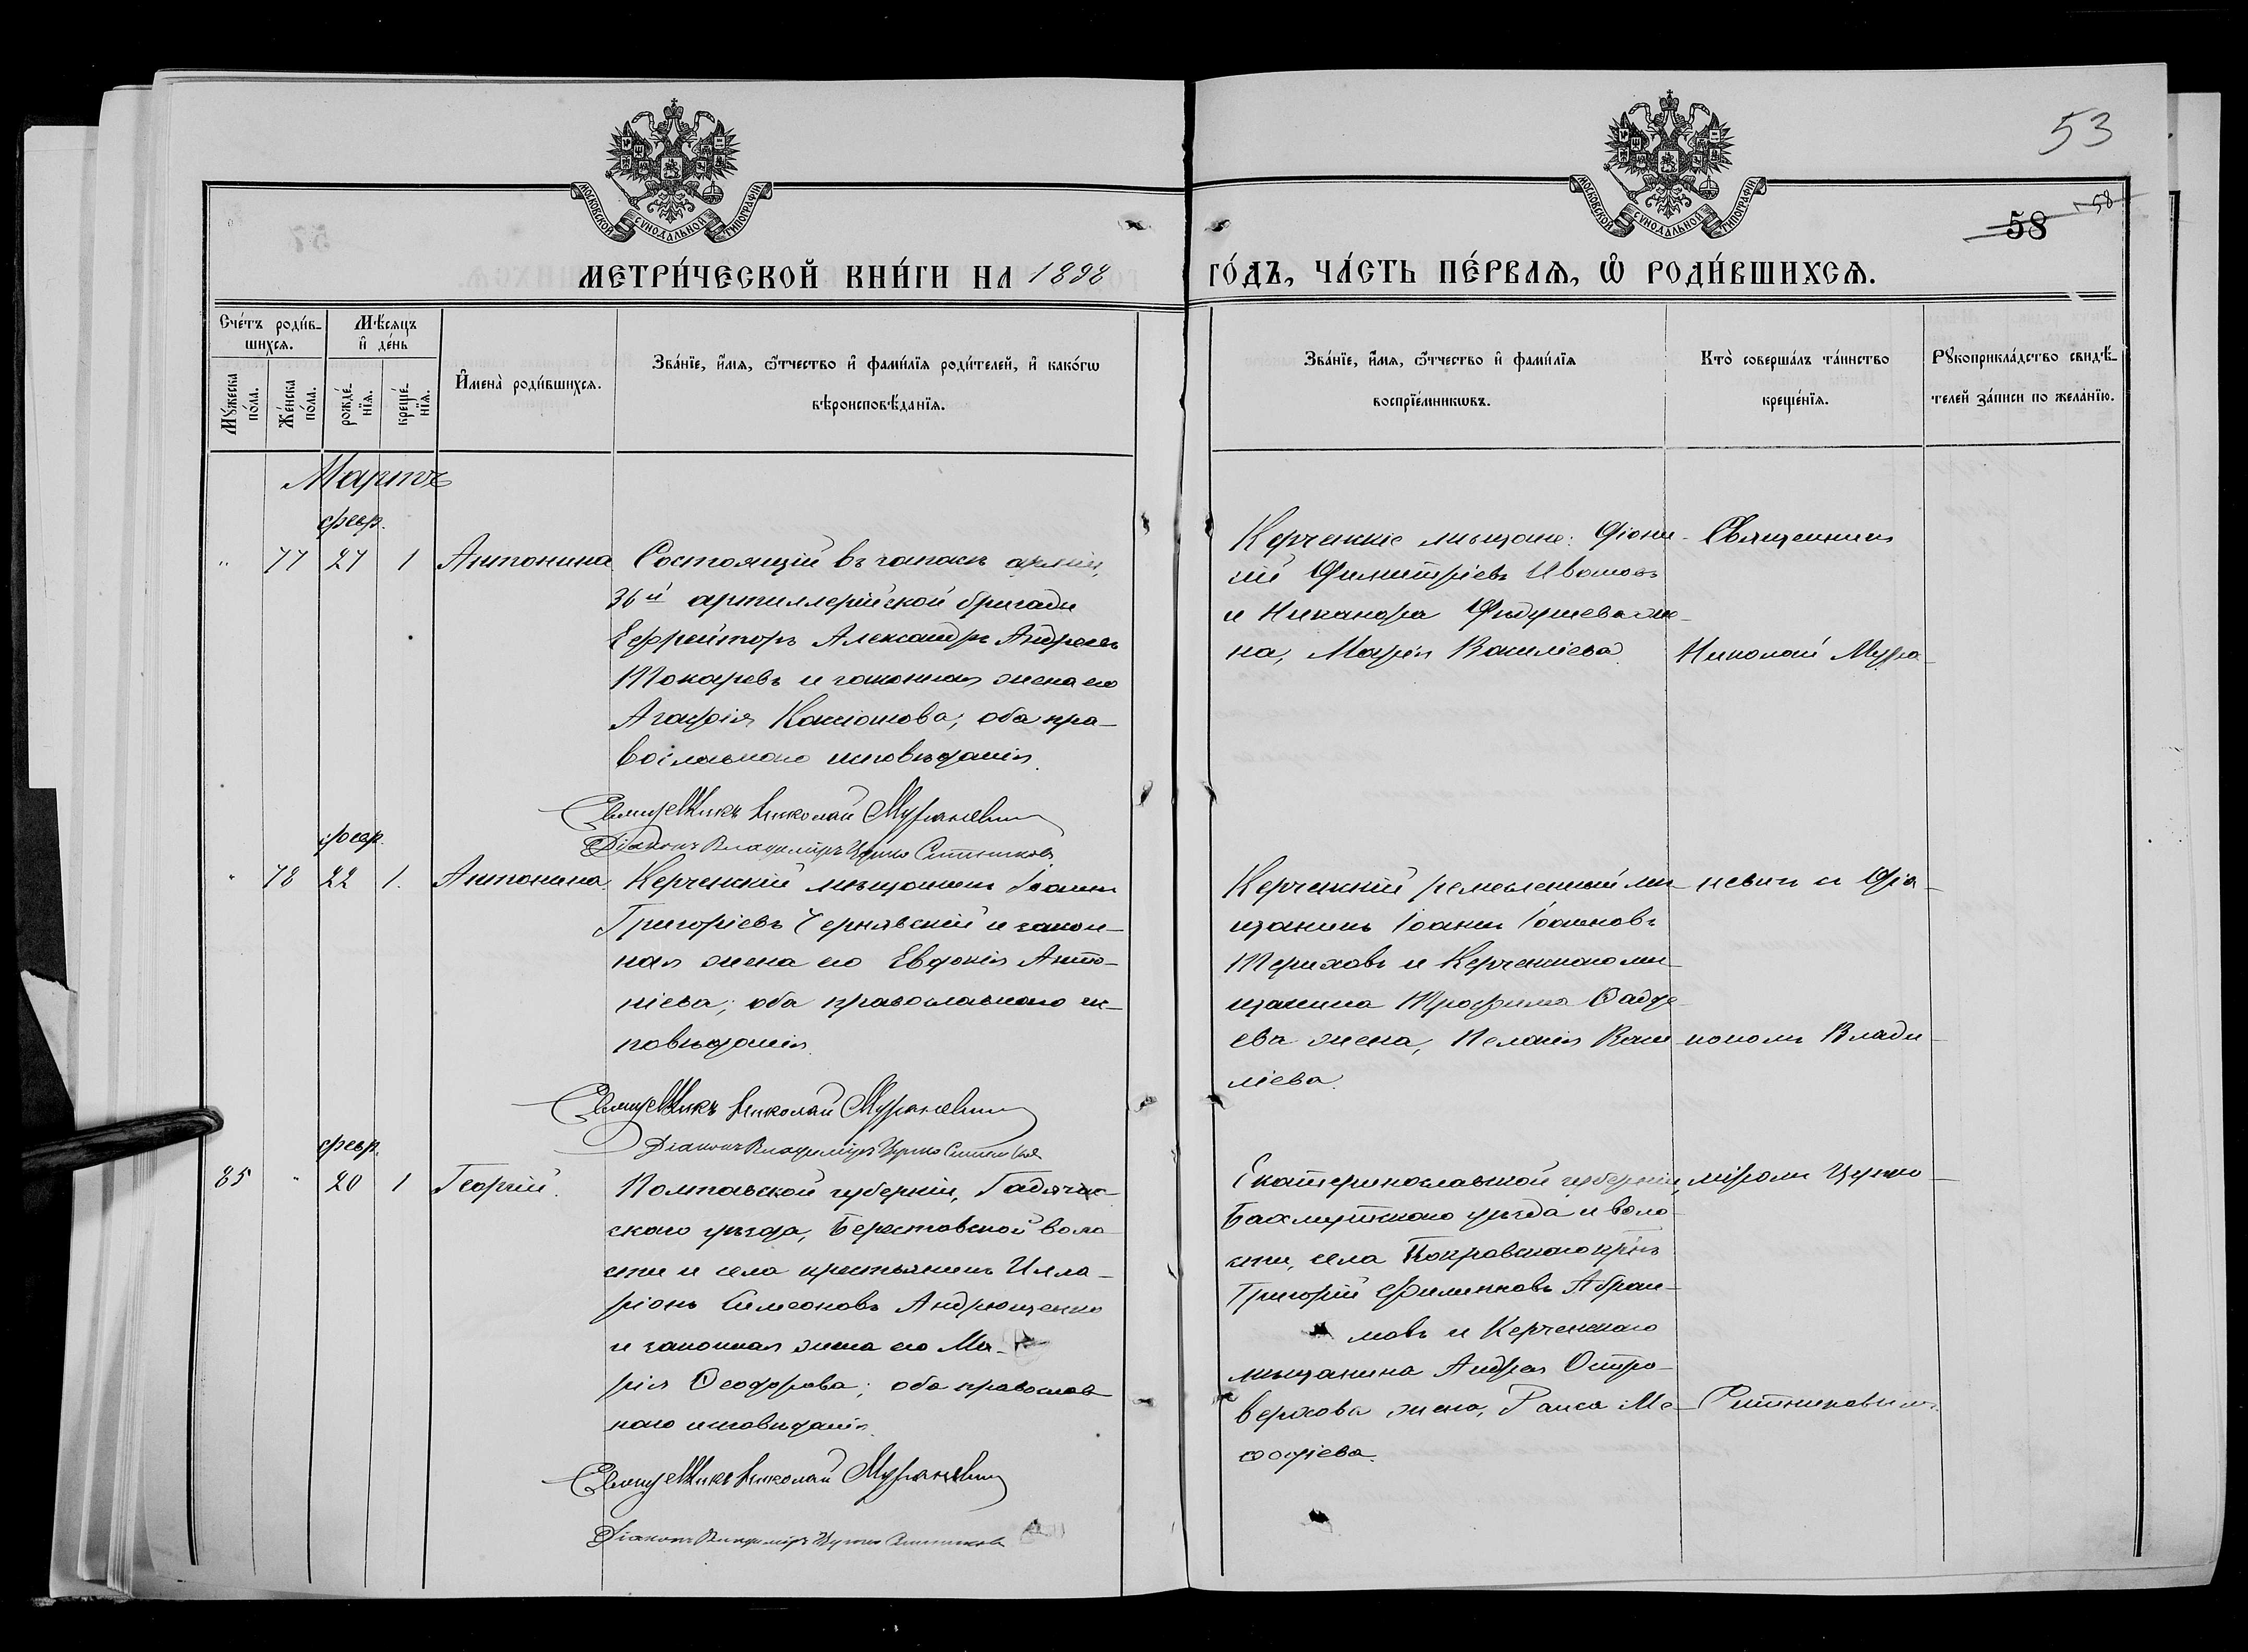 53
58
58
МОСКОВСКОЙ СѴНОДАЛЬНОЙ ТИПОГРАФІИ
МОСКОВСКОЙ СѴНОДАЛЬНОЙ ТИПОГРАФІИ
МЕТРИ́ЧЕСКОЙ КНИ́ГИ НА 1898
ГО́ДЪ, ЧА́СТЬ ПЕ́РВАѦ, Ѽ РОДИ́ВШИХСѦ.
Сче́тъ роди́в-
шихсѧ.
Мѣ́сяцъ
и҆ де́нь
Мꙋ́жеска
по́ла.
Же́нска
по́ла.
рожде́-
нїѧ.
креще́-
нїѧ.
И҆мена̀ роди́вшихсѧ.
Зва́нїе, и҆́мѧ, ѻ҆́тчество и҆ фами́лїѧ роди́телей, и҆ како́гѡ
вѣроисповѣ́данїѧ.
Зва́нїе, и҆́мѧ, ѻ҆́тчество и҆ фами́лїѧ
воспрїе́мникѡвъ.
Кто̀ соверша́лъ та́инство
креще́нїѧ.
Рꙋкоприкла́дство свидѣ́-
телей за́писи по жела́нїю.
Мартъ
февр.
" 77 27 1 Антонина
Состоящій въ запасѣ арміи,
36й артиллерійской бригады
Ефрейторъ Александръ Андреевъ
Токаревъ и законная жена его
Агафія Кассіанова; оба пра-
вославного исповѣданія.
Священникъ Николай Мураневичъ
Діаконъ Владиміръ Цушко Ситниковъ
Керченскіе мѣщане: Діони-
сій Димитріевъ Ивановъ
и Никанора Федушева же-
на, Марія Васильева
Священникъ
Николай Мура-
февр.
" 78 22 1. Антонина.
Керченскій мѣщанинъ Іоаннъ
Григоріевъ Чернявскій и закон-
ная жена его Евдокія Анто-
ніева; оба православного ис-
повѣданія.
Священникъ Николай Мураневичъ
Діаконъ Владиміръ Цушко Ситниковъ
Керченскій ремесленный мѣ-
щанинъ Іоаннъ Іоанновъ
Тереховъ и Керченского мѣ-
щанина Трофима Ѳадде-
ева жена, Пелагія Васи
ліева.
невичъ и Діа-
кономъ Влади-
февр.
85 " 20 1 Георгій.
Полтавской губерніи, Гадяч-
ского уѣзда, Берестовской воло
сти и села крестьянинъ Илла-
ріонъ Симеоновъ Андрющенко
и законная жена его Ма-
рія Ѳеодорова; оба православ
ного исповѣданія.
Священникъ Николай Мураневичъ
Діаконъ Владиміръ Цушко Ситниковъ
Екатеринославской губерніи,
Бахмутского уѣзда и воло-
сти, села Покровского кр-нъ
Григорій Филипповъ Абраи-
мовъ и Керченского
мѣщанина Андрея Остро-
верхова жена, Раиса Ме-
ѳодіева.
міромъ Цушко-
Ситниковымъ.